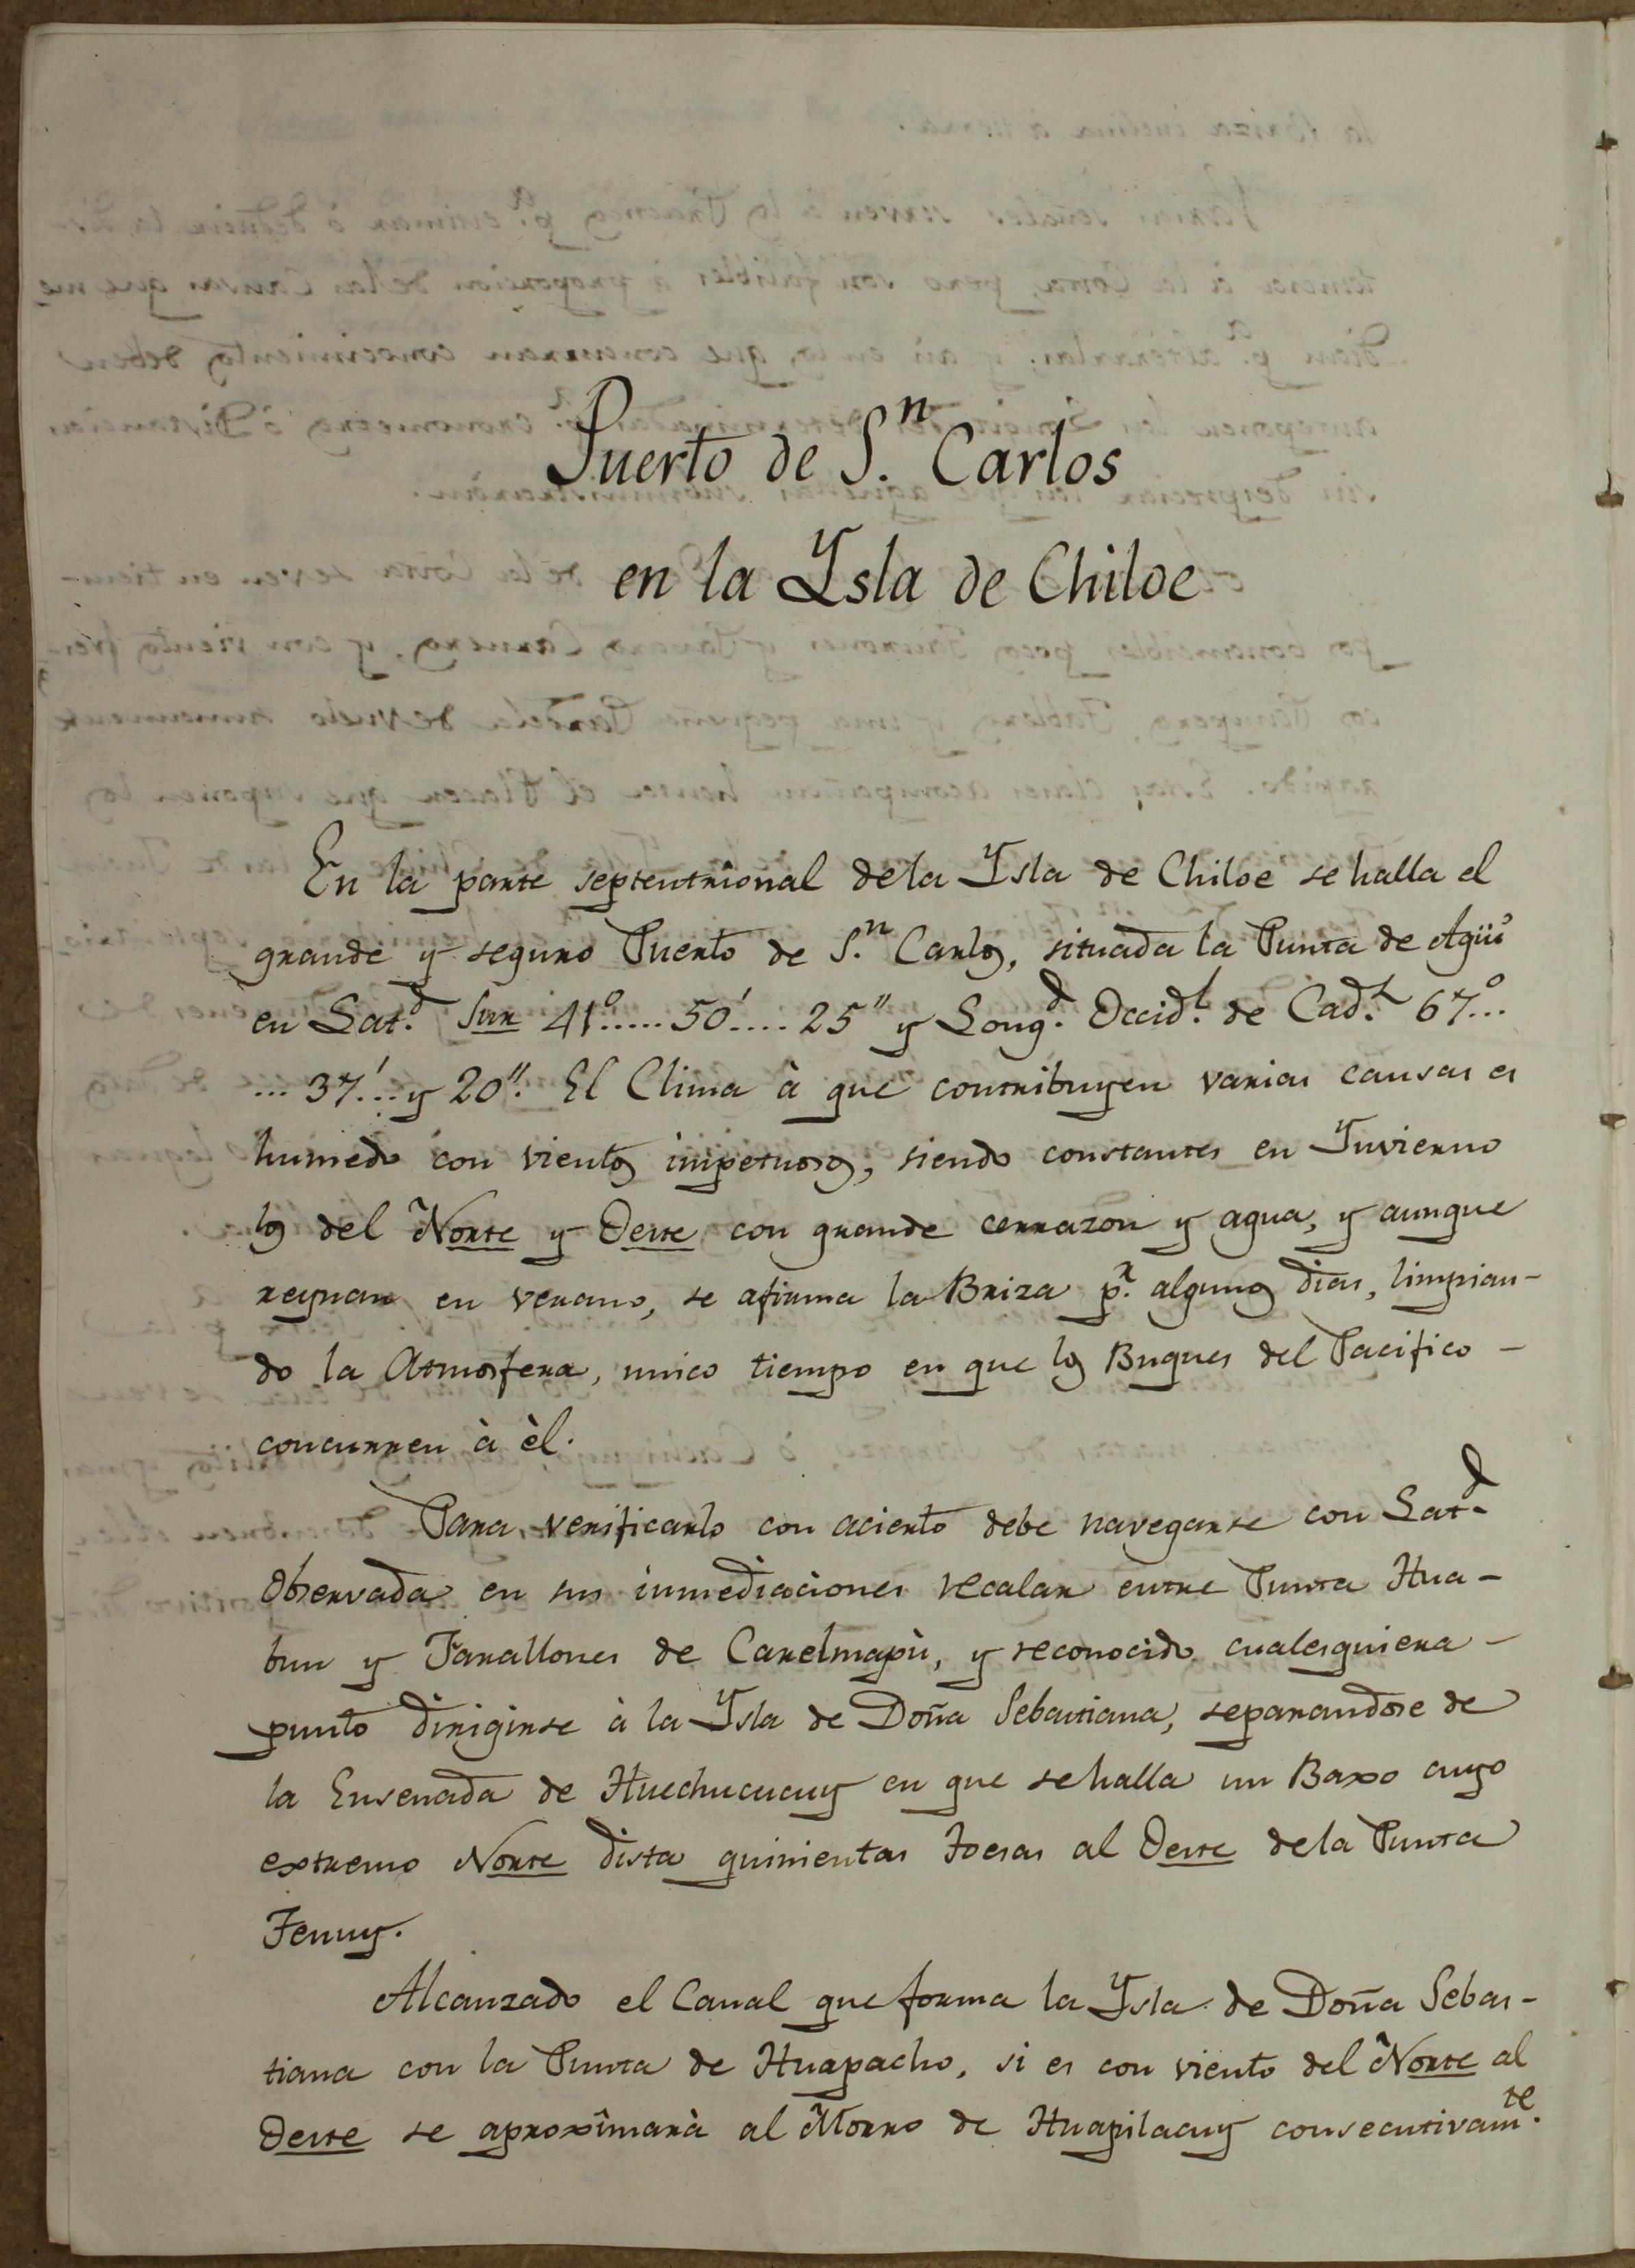 Puerto de S.n Carlos
en la Ysla de Chiloe
En la parte septentrional dela Ysla de Chiloe se halla el
grande y seguro Puerto de S.n Carlos, situada la Punta de Agüi
en Lat.d Sur 41°.....50'....25" y Long.d Occid.l de Cad.z 67°...
...37'...y 20". El Clima à que contribuyen varias causas es
humedo con vientos impetuosos, siendo constantes en Ynvierno
los del Norte y Oeste con grande cerrazon y agua, y aunque
reynan en verano, se afirma la Briza p.r algunos dias, limpian-
do la Atmosfera, unico tiempo en que los Buques del Pacifico -
concurren à èl.
Para verificarlo con acierto debe navegarse con Lat.d
Observada en sus inmediaciones recalar entre Punta Hua-
bun y Farallones de Carelmapù, y reconocido cualesquiera -
punto dirigirse à la Ysla de Doña Sebastiana, separandose de
la Ensenada de Huechucucuy en que se halla un Baxo cuyo
extremo Norte dista quinientas toesas al Oeste dela Punta
Tenuy.
Alcanzado el Canal que forma la Ysla de Doña Sebas-
tiana con la Punta de Huapacho, si es con viento del Norte al
Oeste se aproximarà al Morro de Huapilacuy consecutivam.te